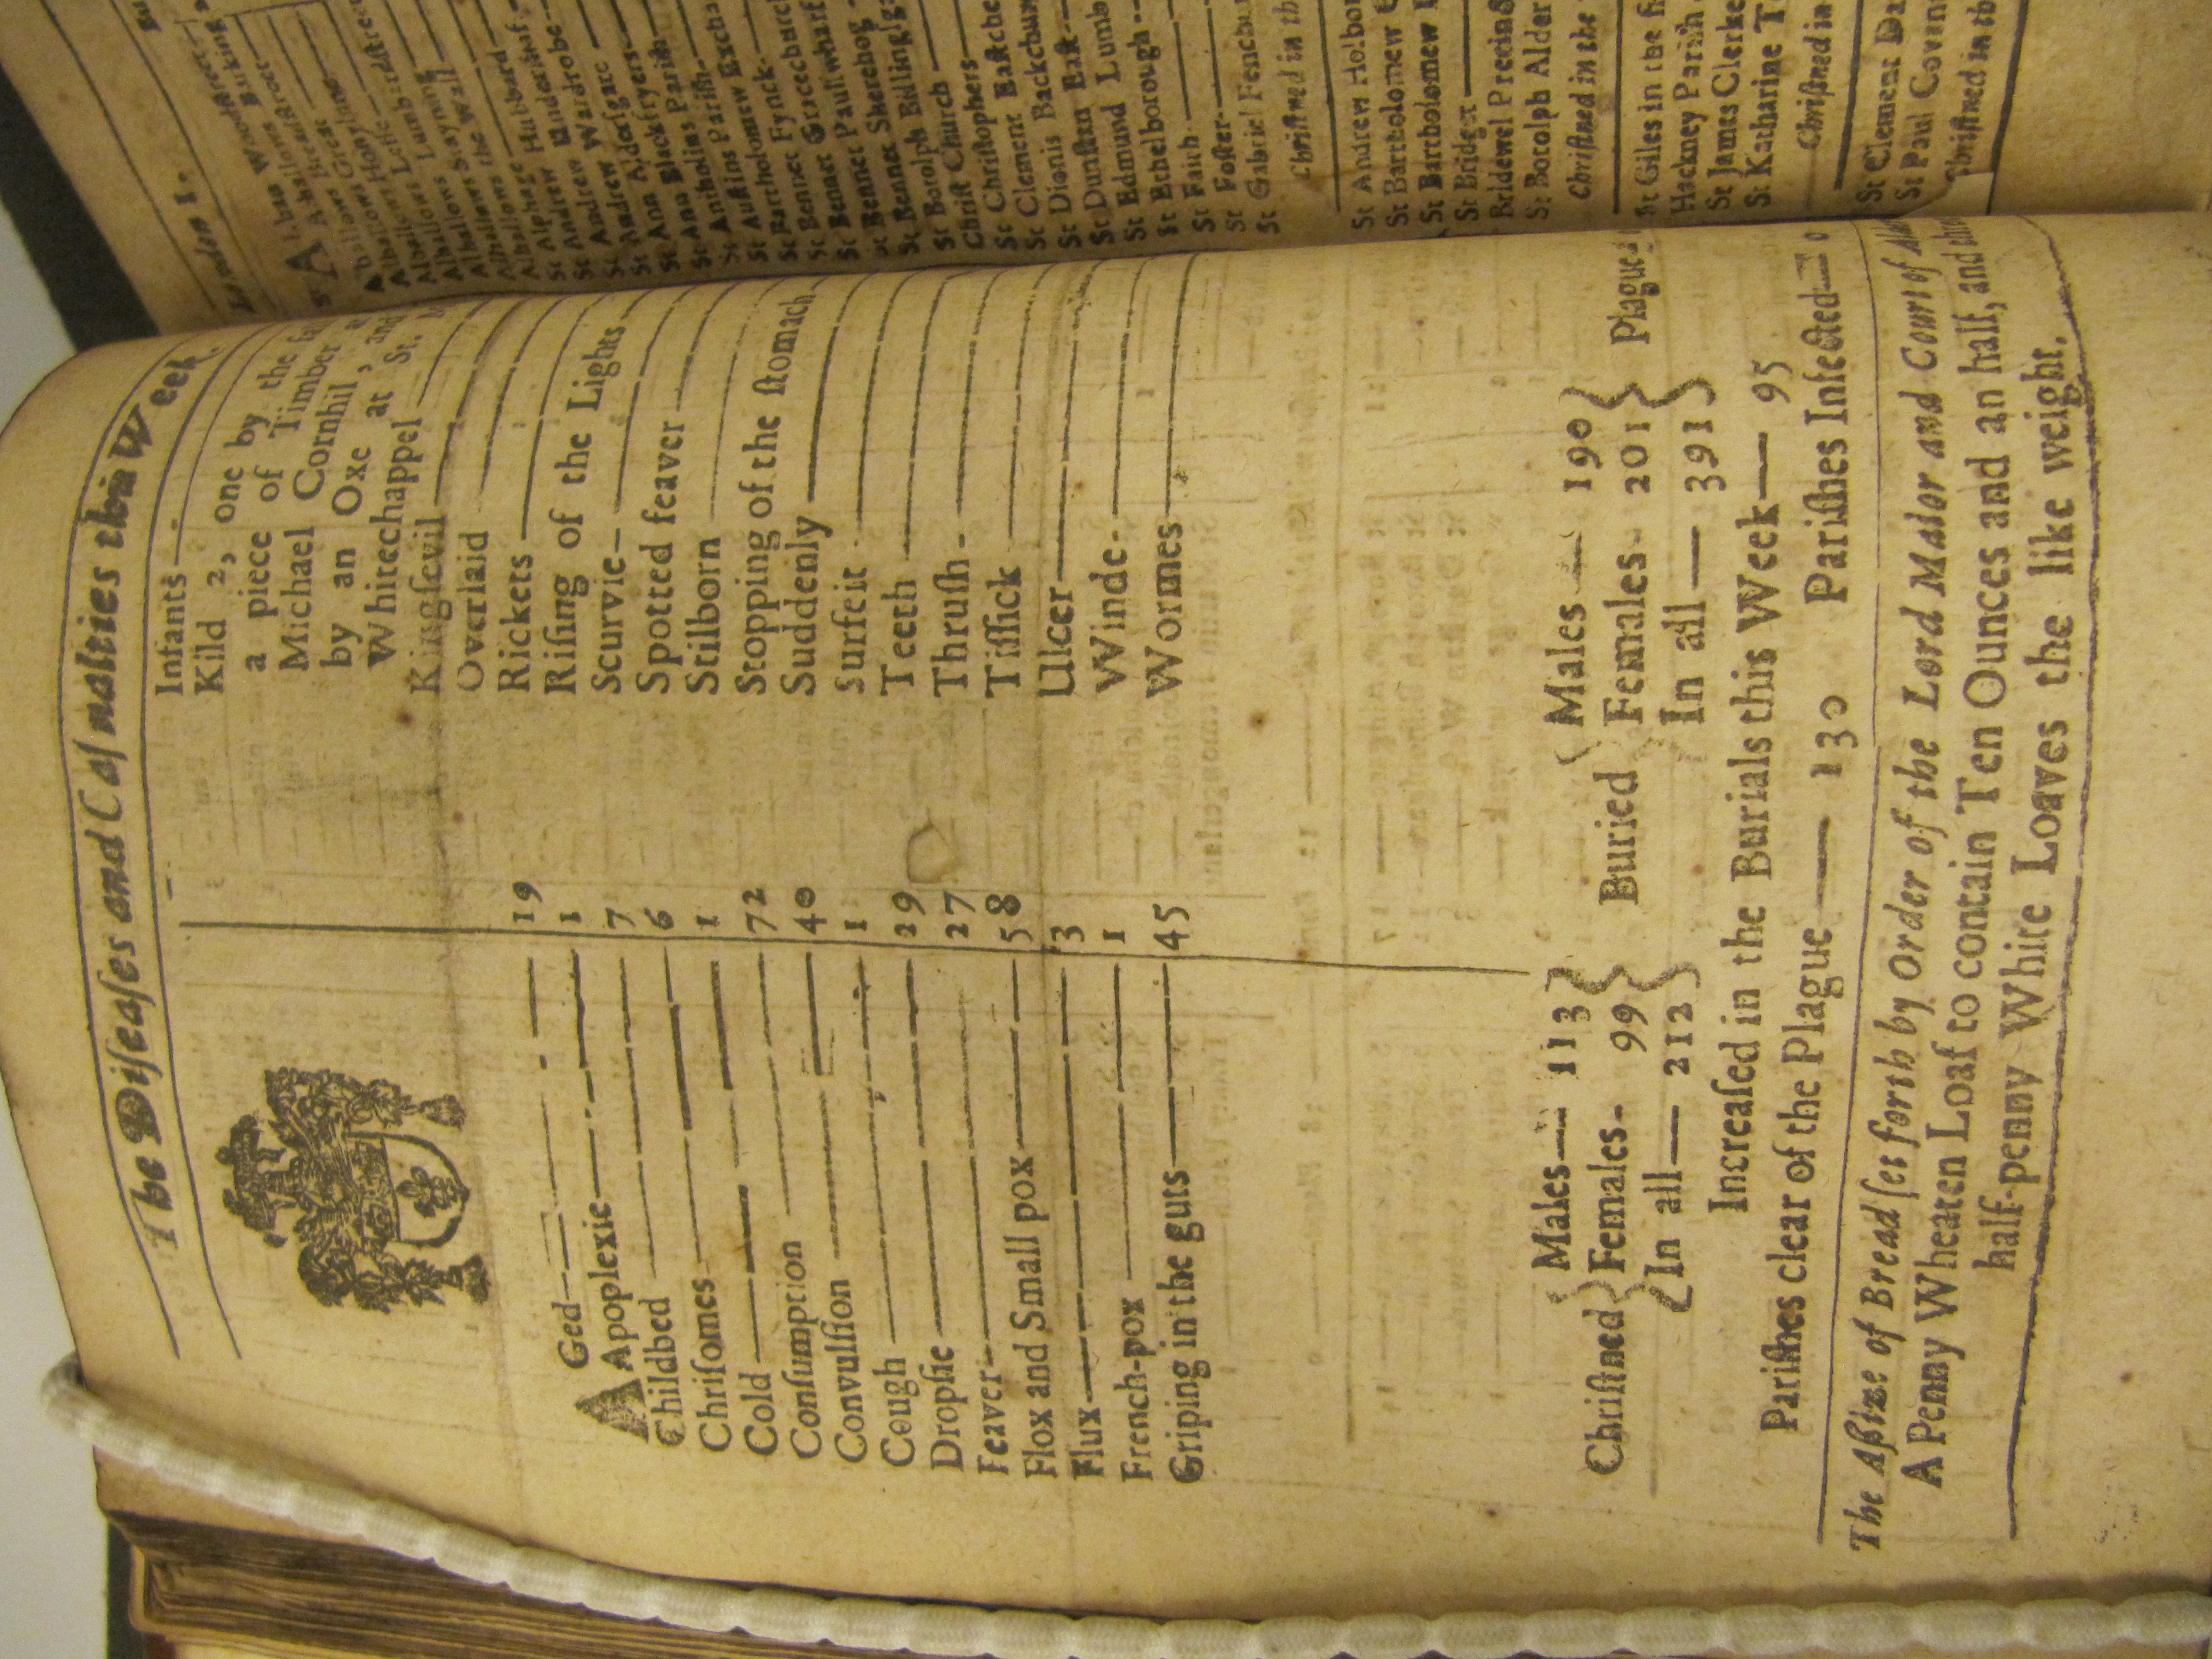 The Diſeaſes and Caſualties this Week.
AGed 19
Apoplexie 1
Childbed 7
Chriſomes 6
Cold 1
Conſumption 72
Convulſion 40
Cough 1
Dropſie 29
Feaver 27
Flox and Small pox 58
Flux 3
French-pox 1
Griping in the guts 45
Infants
Kild 2, one by
a piece of Timber
Michael Cornhil, and
by an Oxe at St.
Whitechappel
Kingſevil
Overlaid
Rickets
Riſing of the Lights
Scurvie
Spotted feaver
Stilborn
Stopping of the ſtomach
Suddenly
Surfeit
Teeth
Thruſh
Tiſſick
Ulcer
Winde
Wormes
Chriſtned { Males 113 Females 99 In all 212 }
Buried { Males 190 Females 201 In all 391 } Plague
Increaſed in the Burials this Week 95
Pariſhes clear of the Plague 130 Pariſhes Infected 0
The Aſsize of Bread ſet forth by Order of the Lord Maior and Court of
A Penny Wheaten Loaf to contain Ten Ounces and an half, and
half-penny White Loaves the like weight.
London
Alhallows Honylane
Alhallows Lumb
Alhallows Stayning
Alhallows the Wall
Alphage
St Andrew Hubbard
St Andrew Underſhaf
St Andrew Wardrobe
St Ann Alderſgate
St Ann Blackfryers
St Antholins Pariſh
St Auſtins Pariſh
St Bartholomew Excha
St Bennet Fynck
St Bennet Gracechurch
St Bennet Paulſwharf
St Bennet Sherehog
St Botolph Billingſga
Chriſt Church
St Chriſtophers
St Clement Eaſtche
St Dionis Backchur
St Dunſtan Eaſt
St Edmund Lumb
St Ethelborough
St Faith
St Foſter
St Gabriel Fenchu
Chriſtned in th
St Andrew Holbor
St Bartholomew
St Bartholomew
St Bridget
Bridewel Precinct
St Botolph Alder
Chriſtned in the
St Giles in the fi
Hackney Pariſh
St James Clerke
St Katharine T
Chriſtned in
St Clement Da
St Paul Coven
Chriſtned in th